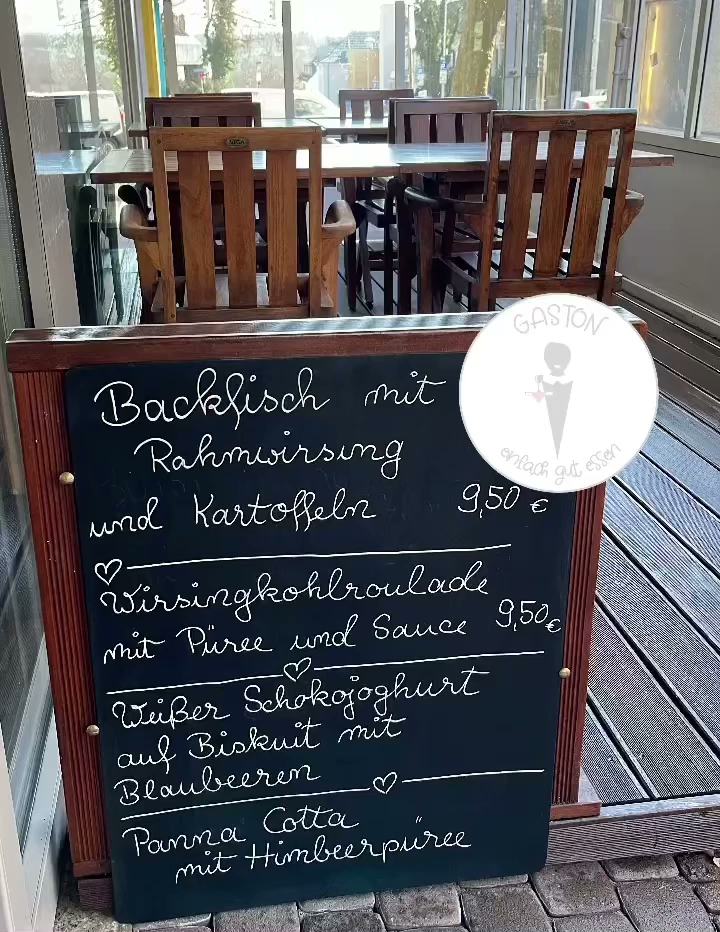 GASTON
einfach gut essen
Backfisch mit
Rahmwirsing
und Kartoffeln 9,50 €
Wirsingkohlroulade
mit Püree und Sauce 9,50€
Weißer Schokojoghurt
auf Biskuit mit
Blaubeeren
Panna Cotta
mit Himbeerpüree